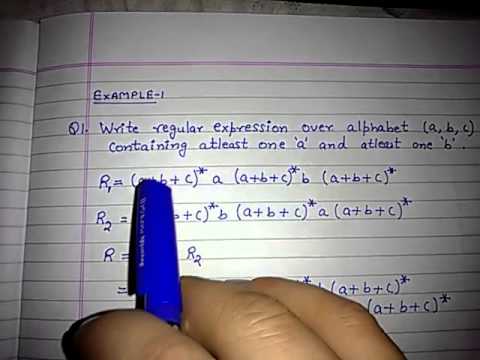 EXAMPLE-1
Q1. Write regular expression over alphabet (a, b, c)
containing atleast one 'a' and atleast one 'b'.
R₁ = (a+b+c)* a (a+b+c)* b (a+b+c)*
R₂ = b+c)* b (a+b+c)* a (a+b+c)*
R = R₂
= * b (a+b+c)*
(a+b+c)*